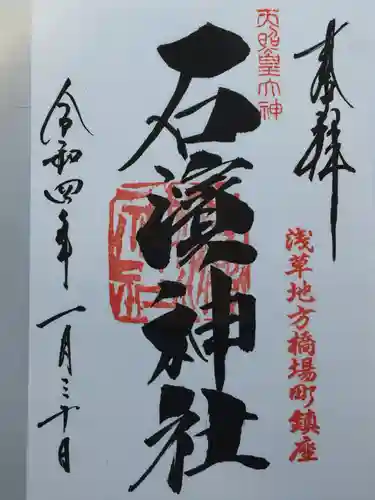 奉拝
天照皇大神
浅草地方橋場町鎮座
石濱神社
令和四年一月三十日